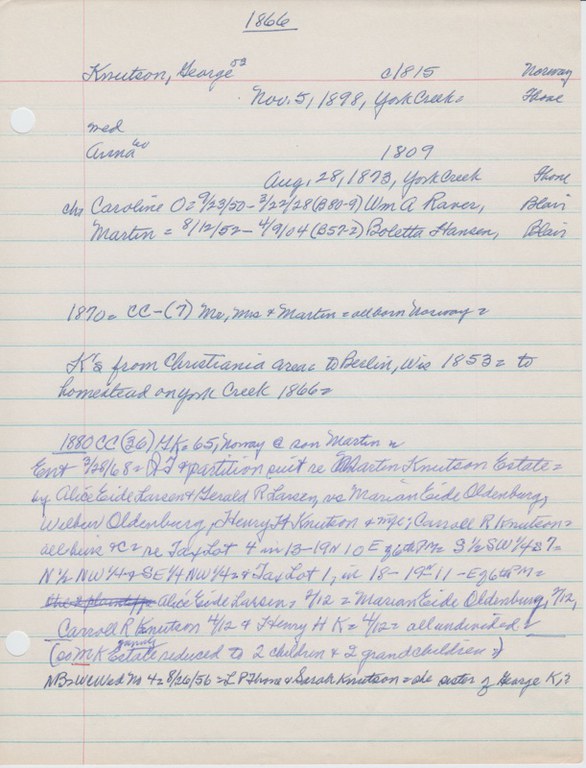 1866
Knutson, George 52 c1815 Norway
Nov. 5, 1898, York Creek= Thone
med
Anna 60 1809
Aug. 28, 1873, York Creek Thone
chs Caroline O= 9/23/50 - 3/22/28 (B80-9) Wm A Raver, Blair
Martin = 8/12/52 - 4/9/04 (B57-2) Boletta Hansen, Blair
1870= CC-(7) Mr, Mrs & Martin = all born Norway =
K's from Christiania area= to Berlin, Wis 1853= to
homestead on York Creek 1866=
1880 CC (36) GK= 65, Norway c son Martin
Ent 3/28/68 = & partition suit re Martin Knutson Estate=
by Alice Eide Larsen & Gerald R Larsen, vs Marian Eide Oldenburg,
Wilbur Oldenburg, Henry H Knutson & wife, Carroll R Knutson=
all heirs &c = re Tax Lot 4 in 13-19N 10 E of 6th PM= S 1/2 SW 1/4 & 7=
N 1/2 NW 1/4 & SE 1/4 NW 1/4= & Tax Lot 1, in 18-19-11-E of 6th PM=
Alice Eide Larsen= 2/12 = Marian Eide Oldenburg, 2/12,
Carroll R Knutson 4/12 & Henry H K= 4/12= all undivided=
(so M K Estate family reduced to 2 children & 2 grandchildren)
NB= W Wed No 4= 8/26/56 = L P Thone & Sarah Knutson = she sister of George K,?